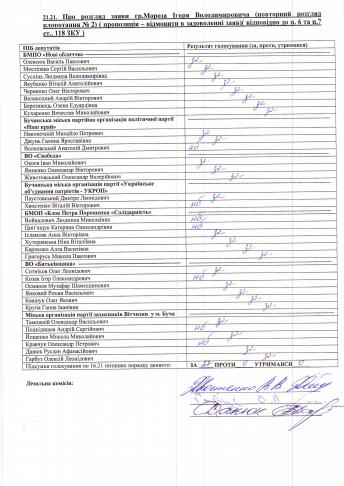 21.21. Про розгляд заяви гр.Мороза Ігоря Володимировича (повторний розгляд
клопотання № 2) ( пропозиція – відмовити в задоволенні заяви)( відповідно до п. 6 та п.7
ст.. 118 ЗКУ )
ПІБ депутатів Результат голосування (за, проти, утримався)
БМПО «Нові обличчя»
Олексюк Василь Павлович за
Мостіпака Сергій Васильович за
Суслова Людмила Володимирівна за
Якубенко Віталій Анатолійович за
Черненко Олег Вікторович за
Великодний Андрій Вікторович за
Березинець Олена Едуардівна за
Кухаренко Вячеслав Миколайович за
Бучанська міська партійна організація політичної партії
«Наш край»
Наконечний Михайло Петрович за
Джунь Галина Ярославівна за
Волковський Анатолій Дмитрович нб
ВО «Свобода»
Оксюк Іван Миколайович за
Яненко Олександр Вікторович за
Животовський Олександр Валерійович за
Бучанська міська організація партії «Українське
об'єднання патріотів - УКРОП»
Паустовський Дмитро Леонідович за
Хвостенко Віталій Вікторович нб
БМОП «Блок Петра Порошенка «Солідарність»
Войналович Людмила Миколаївна нб
Ціпʼящук Катерина Олександрівна нб
Ісламова Анна Вікторівна за
Хуторянська Ніна Віталіївна за
Карпенко Алла Василівна за
Григорусь Микола Павлович за
ВО «Батьківщина»
Сотніков Олег Леонідович за
Козак Ігор Олександрович нб
Османов Музафар Шамседінович за
Янковий Роман Васильович за
Квашук Олег Якович за
Крупа Ганна Іванівна за
Міська організація партії захисників Вітчизни у м. Буча
Таможній Олександр Васильович за
Подвідишев Андрій Сергійович нб
Йощенко Микола Миколайович за
Кравчук Олександр Петрович нб
Данюк Руслан Афанасійович за
Гарбуз Олексій Леонідович за
Підсумки голосування по 16.21 питанню порядку данному: ЗА ПРОТИ 0 УТРИМАВСЯ 0
Лічильна комісія: